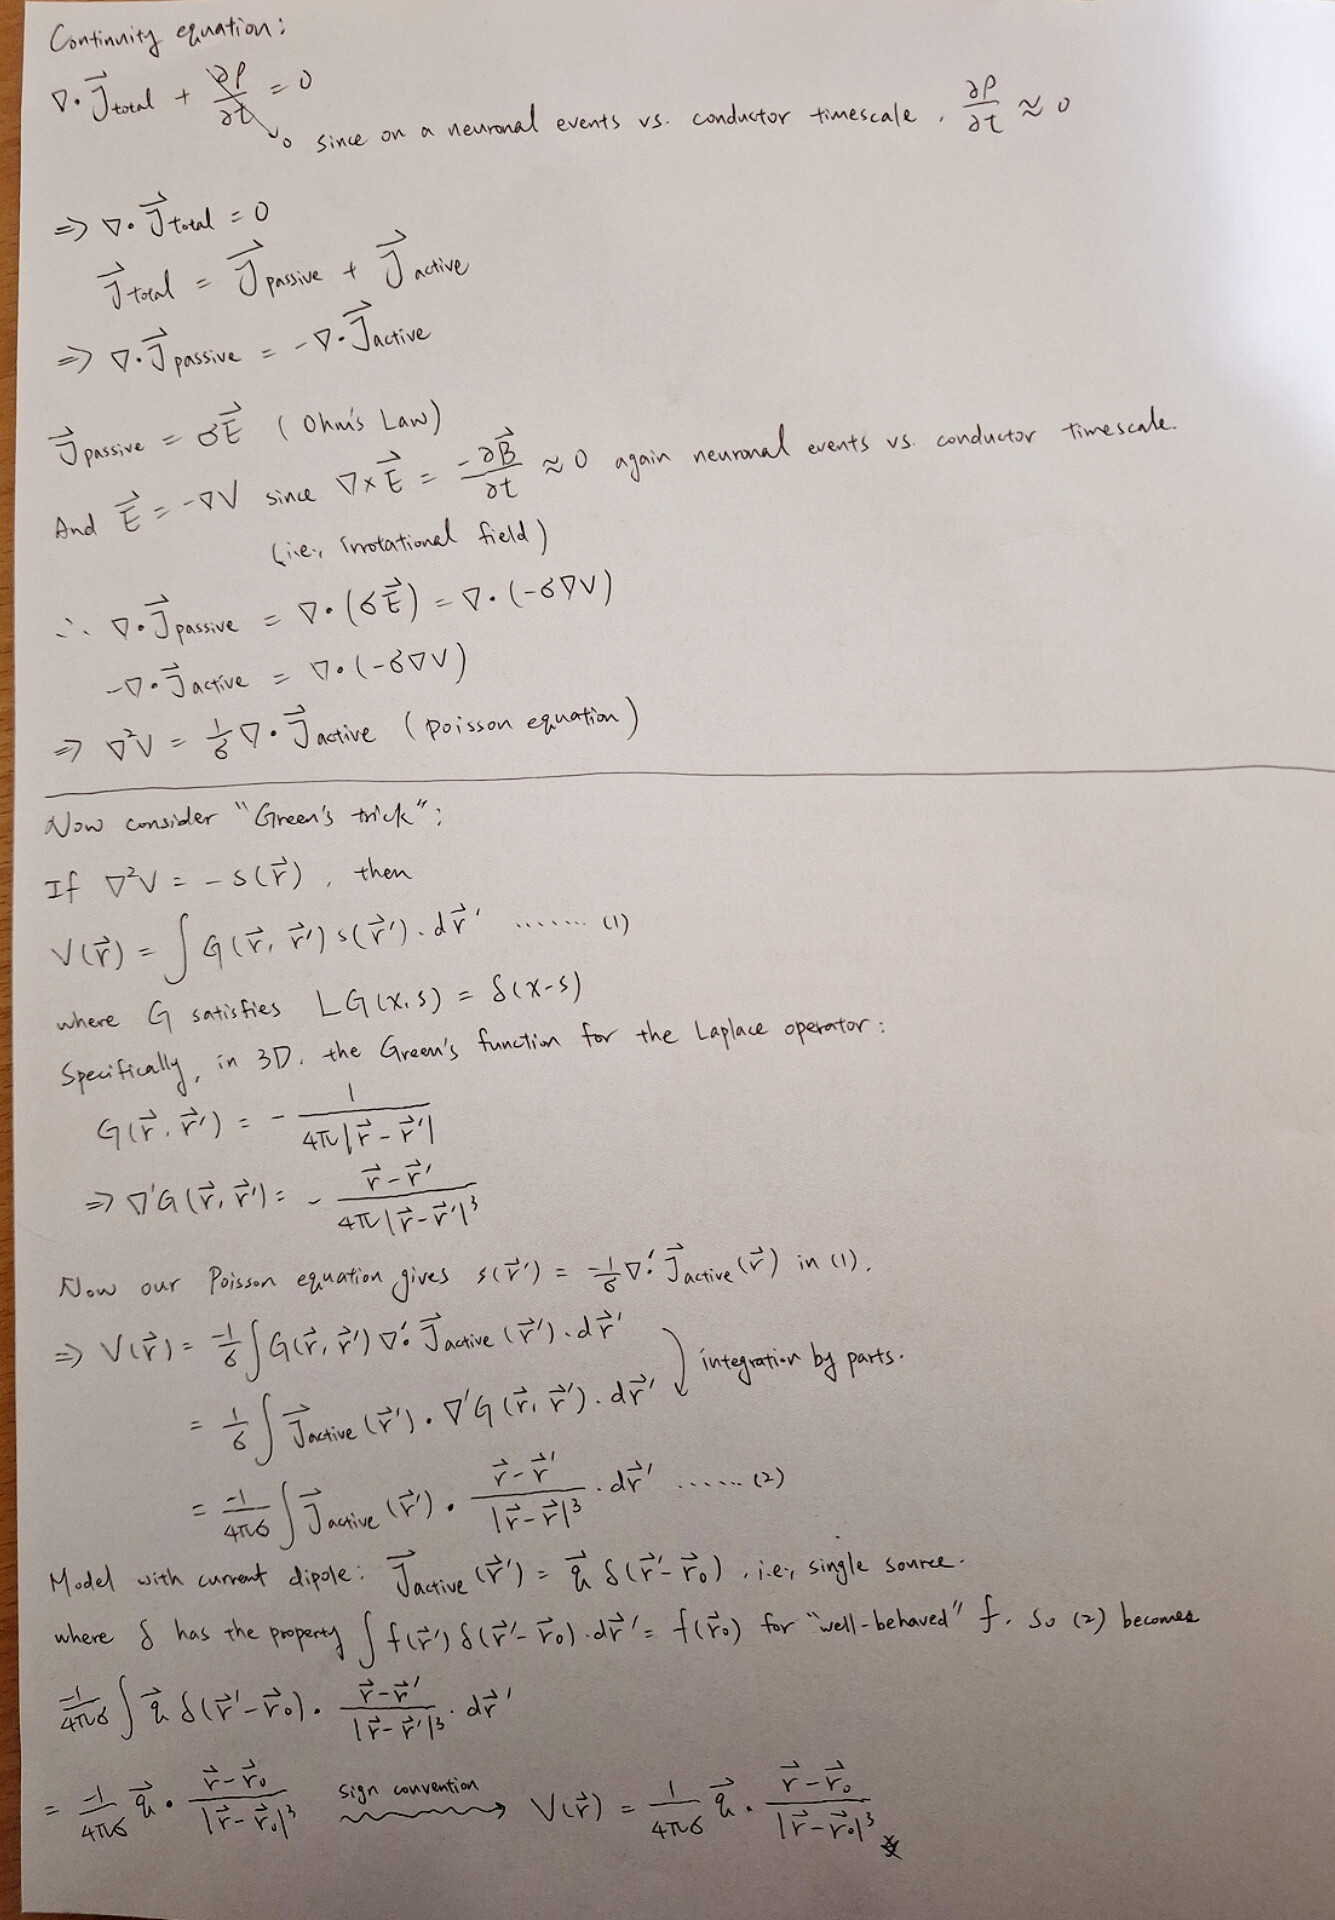 Continuity equation:
∇·J⃗ total + ∂ρ/∂t = 0
→0 since on a neuronal events vs. conductor timescale, ∂ρ/∂t ≈ 0
⇒ ∇·J⃗ total = 0
J⃗ total = J⃗ passive + J⃗ active
⇒ ∇·J⃗ passive = -∇·J⃗ active
J⃗ passive = σE⃗ (Ohm's Law)
And E⃗ = -∇V since ∇×E⃗ = -∂B⃗/∂t ≈ 0 again neuronal events vs. conductor timescale.
(i.e., irrotational field)
∴ ∇·J⃗ passive = ∇·(σE⃗) = ∇·(-σ∇V)
-∇·J⃗ active = ∇·(-σ∇V)
⇒ ∇²V = 1/σ ∇·J⃗ active (Poisson equation)
Now consider "Green's trick":
If ∇²V = -s(r⃗), then
V(r⃗) = ∫G(r⃗, r⃗')s(r⃗')·dr⃗' ....... (1)
where G satisfies LG(x,s) = δ(x-s)
Specifically, in 3D, the Green's function for the Laplace operator:
G(r⃗, r⃗') = - 1/(4π|r⃗-r⃗'|)
⇒ ∇'G(r⃗, r⃗') = - (r⃗-r⃗')/(4π|r⃗-r⃗'|³)
Now our Poisson equation gives s(r⃗') = -1/σ ∇'·J⃗ active(r⃗) in (1).
⇒ V(r⃗) = -1/σ ∫G(r⃗, r⃗') ∇'·J⃗ active(r⃗')·dr⃗'
integration by parts.
= 1/σ ∫J⃗ active(r⃗')·∇'G(r⃗, r⃗')·dr⃗'
= -1/(4πσ) ∫J⃗ active(r⃗')·(r⃗-r⃗')/|r⃗-r⃗'|³·dr⃗' ...... (2)
Model with current dipole: J⃗ active(r⃗') = q⃗ δ(r⃗'-r⃗₀), i.e., single source.
where δ has the property ∫f(r⃗')δ(r⃗'-r⃗₀)·dr⃗' = f(r⃗₀) for "well-behaved" f. So (2) becomes
-1/(4πσ) ∫q⃗ δ(r⃗'-r⃗₀)·(r⃗-r⃗')/|r⃗-r⃗'|³·dr⃗'
= -1/(4πσ) q⃗·(r⃗-r⃗₀)/|r⃗-r⃗₀|³ sign convention → V(r⃗) = 1/(4πσ) q⃗·(r⃗-r⃗₀)/|r⃗-r⃗₀|³